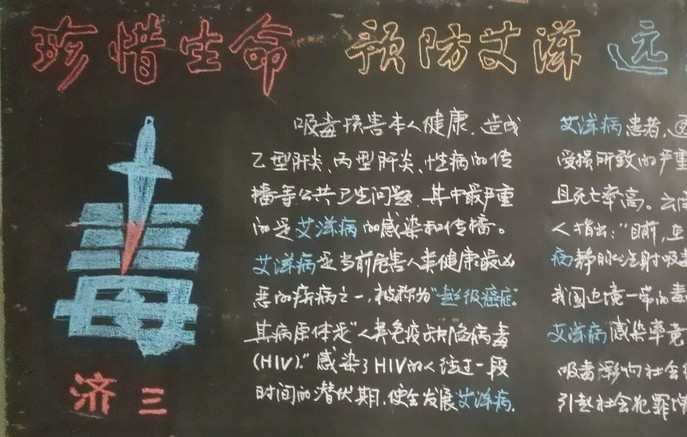 珍惜生命 预防艾滋 远
毒
济三
吸毒损害本人健康,造成
乙型肝炎、丙型肝炎、性病的传
播等公共卫生问题,其中最严重
的是艾滋病的感染和传播。
艾滋病是当前危害人类健康最凶
恶的疾病之一,被称为"超级癌症"
其病原体是"人类免疫缺陷病毒
(HIV)."感染了HIV的人经过一段
时间的潜伏期,便会发展艾滋病.
艾滋病患者,
受损所致的严重
且死亡率高。云南
人指出:"目前,
病静脉注射吸毒
我国边境一带的毒
艾滋病感染率竟
吸毒影响社会
引起社会犯罪